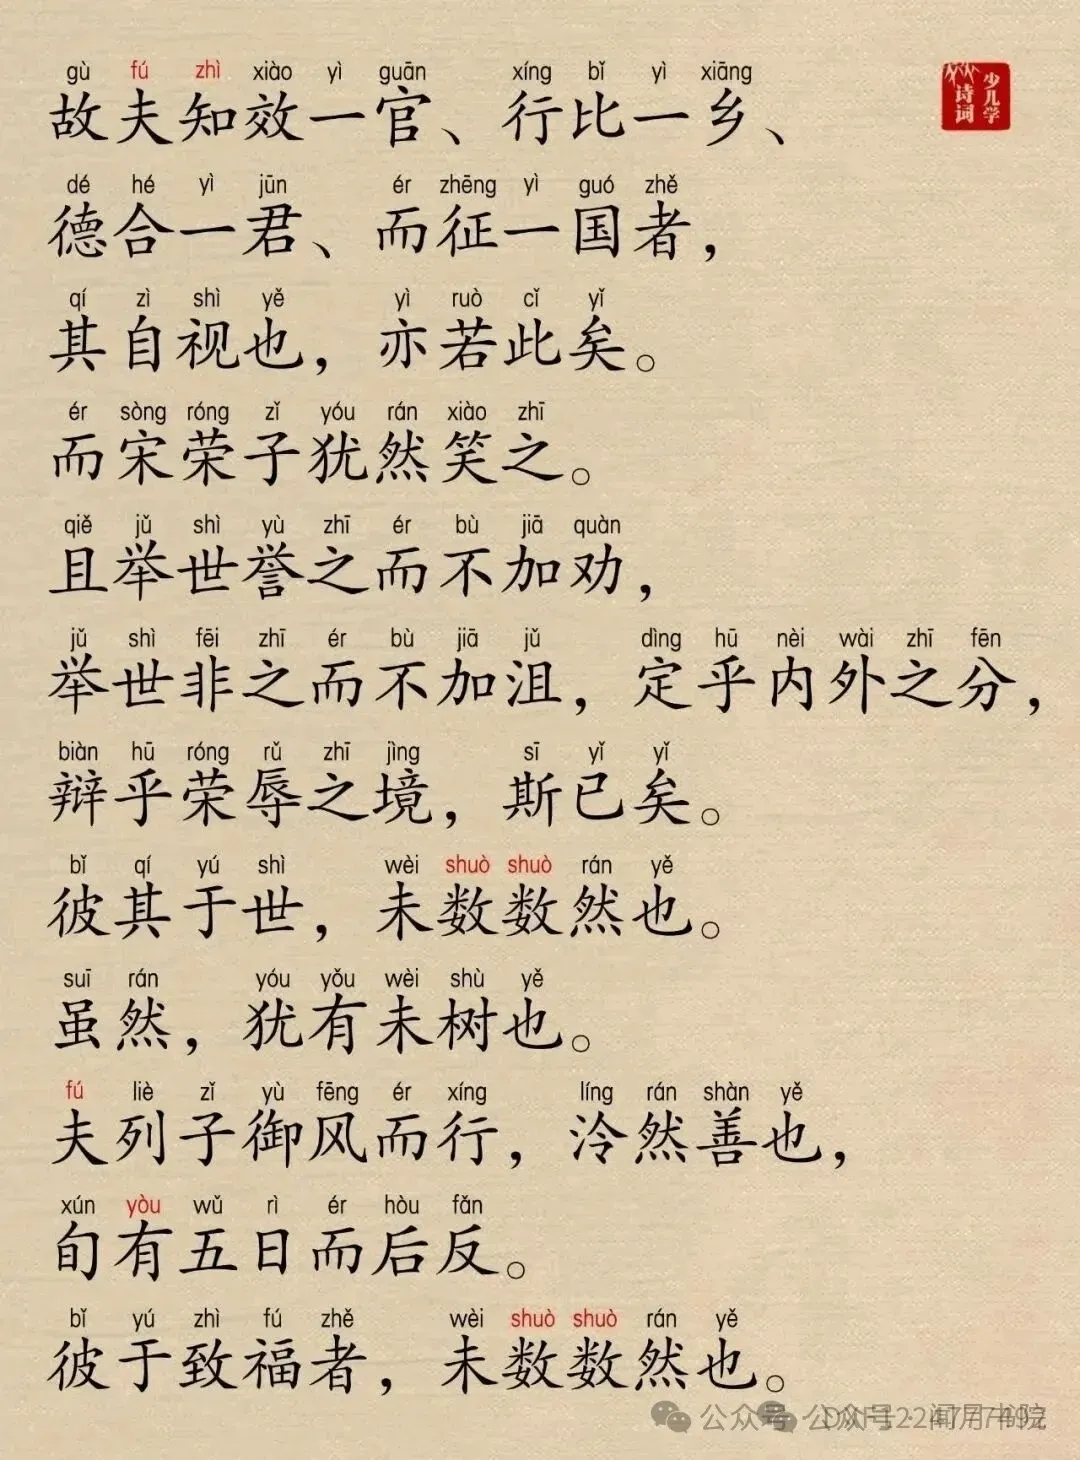 gù fú zhì xiào yì guān xíng bǐ yì xiāng
故夫知效一官、行比一乡、
少儿学
诗词
dé hé yì jūn ér zhēng yì guó zhě
德合一君、而征一国者，
qí zì shì yě yì ruò cǐ yǐ
其自视也，亦若此矣。
ér sòng róng zǐ yóu rán xiào zhī
而宋荣子犹然笑之。
qiě jǔ shì yù zhī ér bù jiā quàn
且举世誉之而不加劝，
jǔ shì fēi zhī ér bù jiā jǔ dìng hū nèi wài zhī fēn
举世非之而不加沮，定乎内外之分，
biàn hū róng rǔ zhī jìng sī yǐ yǐ
辩乎荣辱之境，斯已矣。
bǐ qí yú shì wèi shuò shuò rán yě
彼其于世，未数数然也。
suī rán yóu yǒu wèi shù yě
虽然，犹有未树也。
fú liè zǐ yù fēng ér xíng líng rán shàn yě
夫列子御风而行，泠然善也，
xún yòu wǔ rì ér hòu fǎn
旬有五日而后反。
bǐ yú zhì fú zhě wèi shuò shuò rán yě
彼于致福者，未数数然也。
公众号 公众号·闻月书院